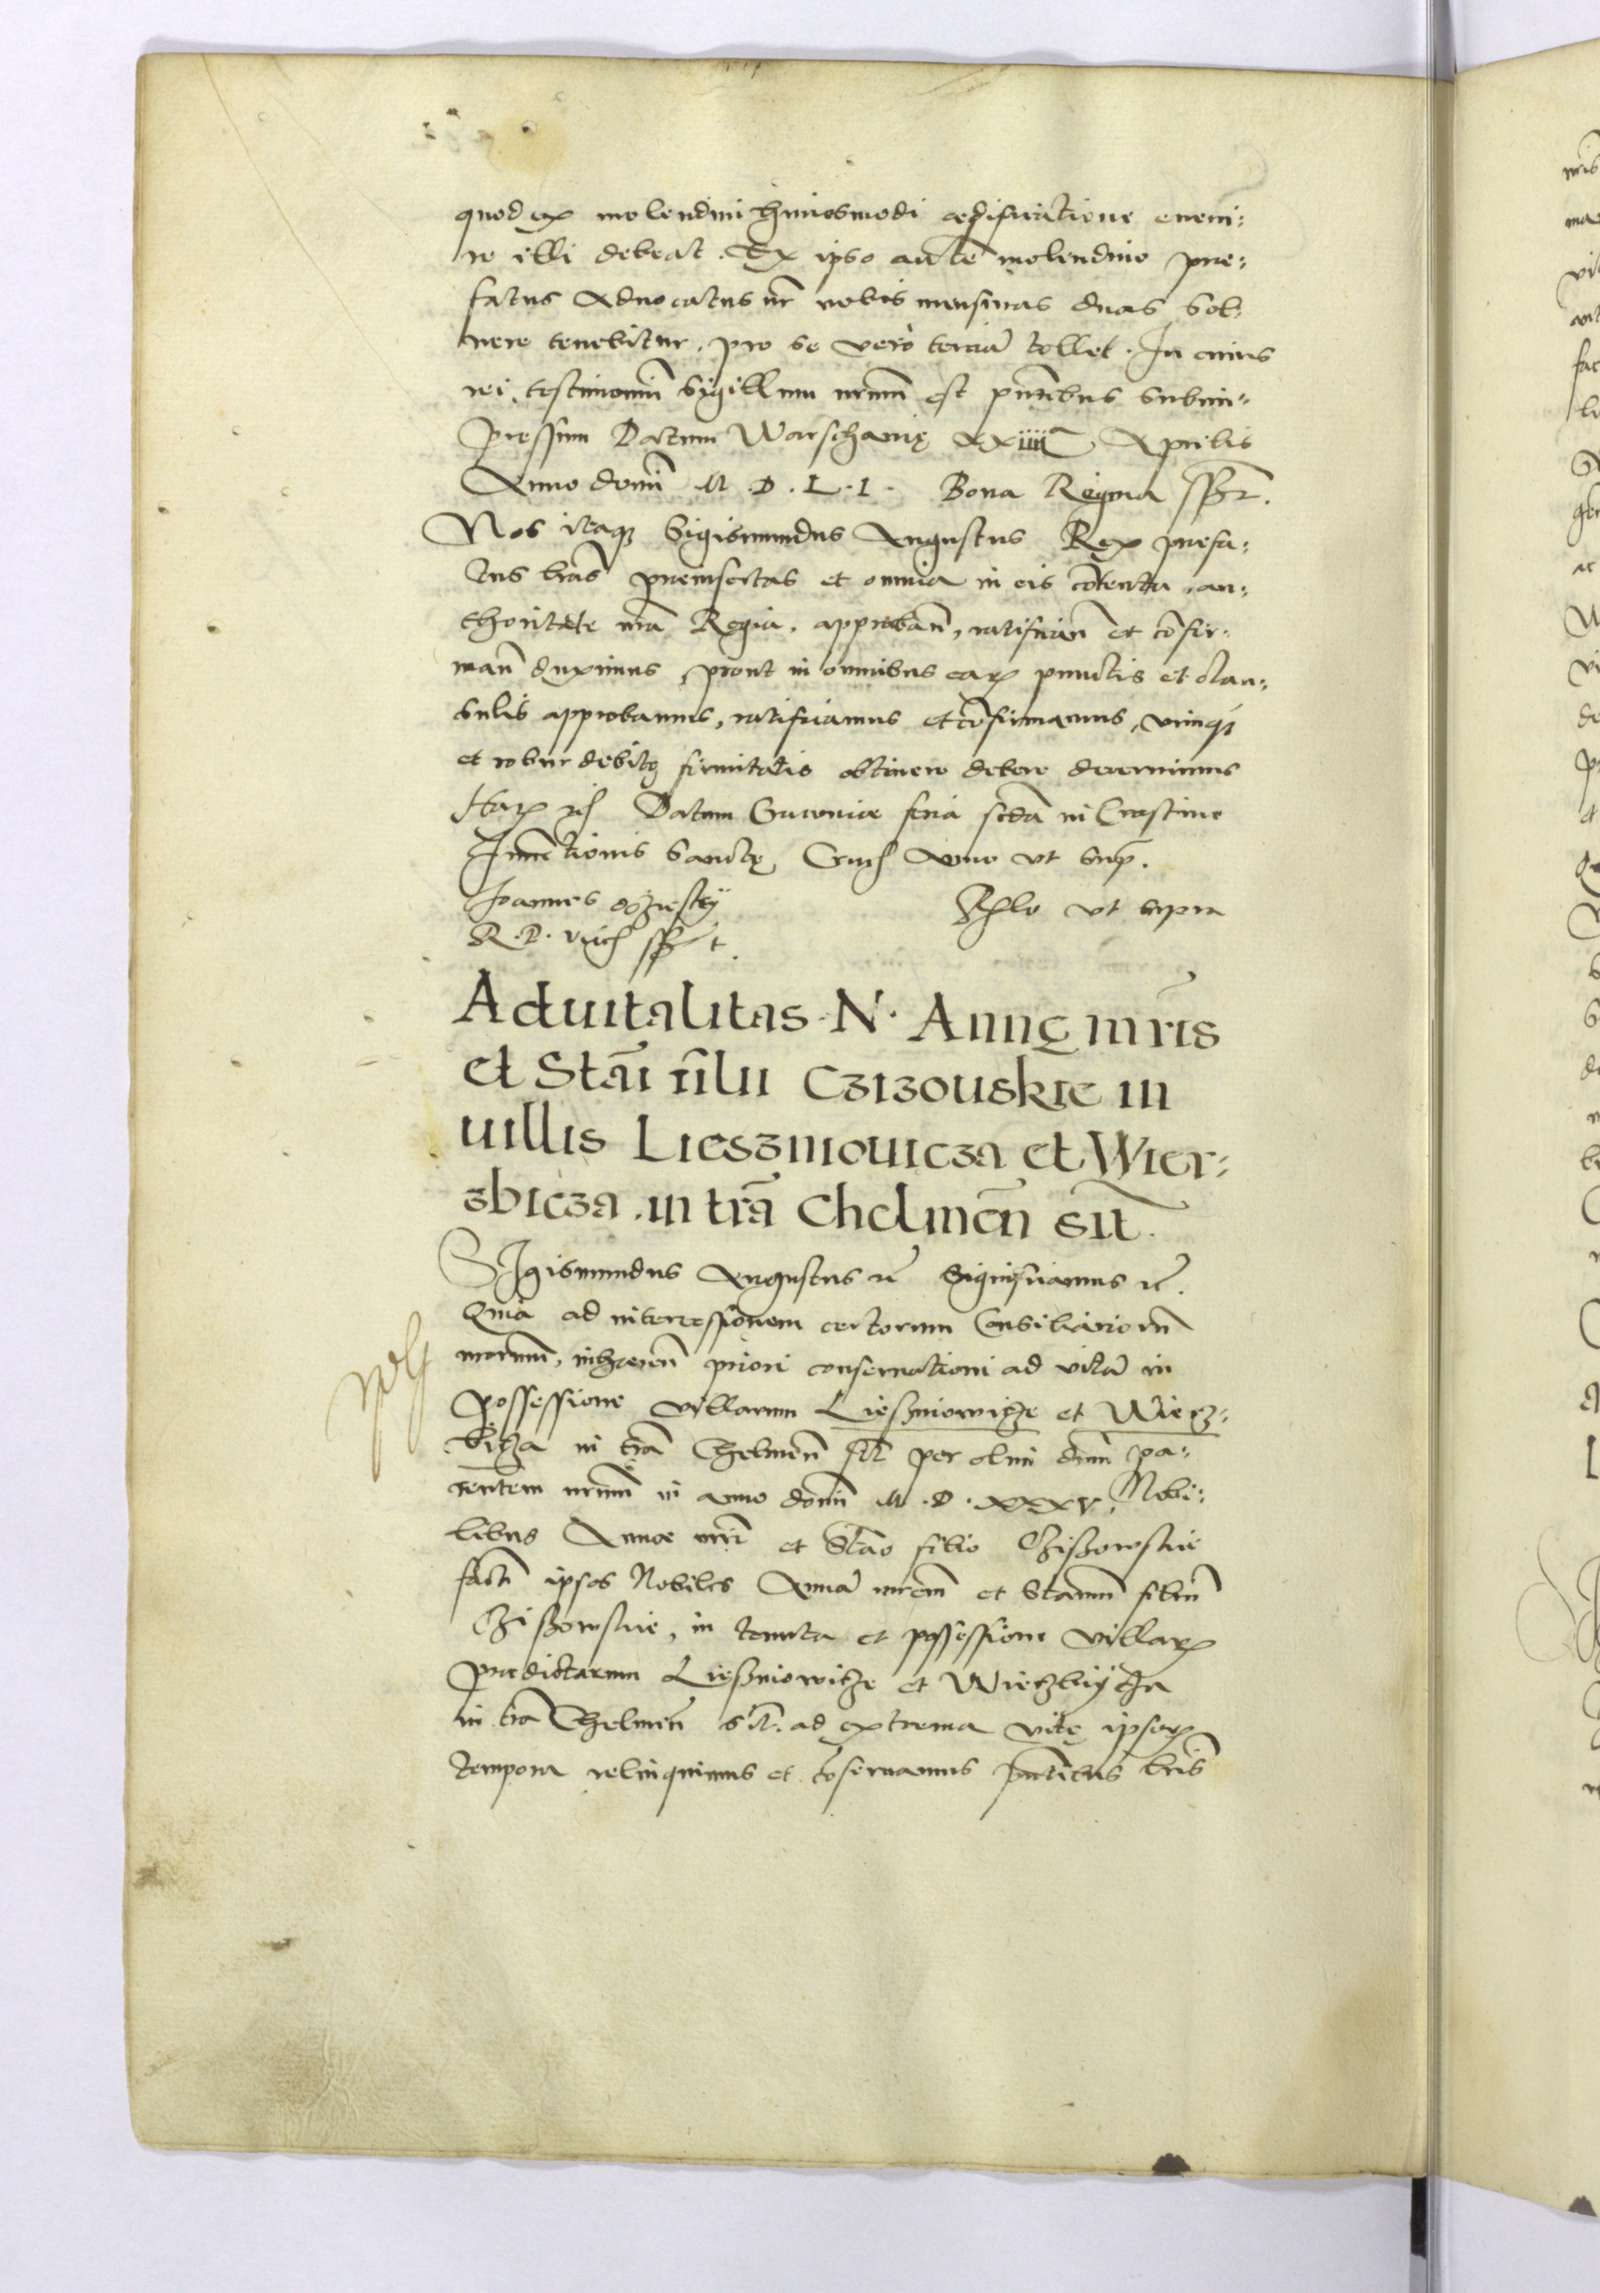 quod ex molendini huiusmodi ædificatione eveni:
re illi debeat. Ex ipso autē molendino præ:
fatus Advocatus nr̄ nobis mensuras duas sol:
uere tenebitur, pro se verò terciā tollet. In cuius
rei testimoniū Sigillum nrūm est pn̄tibus subim:
pressum Datum Warschavię XXiiii Aprilis
Anno domī M.D.L.I. Bona Regina sst.
Nos itaq Sigismundus Augustus Rex præfa:
tus lr̄as præinsertas et omnia in eis cōtenta, au:
thoritate nr̄a Regia, approban̄, ratifican̄ et cōfir:
man̄ duximus, prout in omnibus earꝝ punctis et clau:
sulis approbamus, ratificamus et cōfirmamus, vimq
et robur debitę firmitatis obtinere debere decernimus
Harꝝ Datum Cracoviæ feria scdā in Crastino
Inuētionis Sanctę Crucis Anno vt sup.
Joannes
R.P. vicē sst.
Rlo vt supra
Aduitalitas N. Annę mr̄is
et Stāi filii Czizouskie in
uillis Lieszniouicza et Wier:
zbicza in tr̄a Chelmēn sit̄.
SIgismundus Augustus rē Significamus rē.
Quia ad intercessionem certorum Consiliariorū
nrorum, inhæren̄ priori conservationi ad vitā in
possessione villarum Lieszniowicze et Wierz:
bicza in tr̄a Chelmēn sit̄ per olim dnūm pa:
rentem nrūm in anno domī M.D.XXXV, Nobi:
libus Annæ mr̄i et Stāo filio Czizowskie
fact̄ ipsos Nobiles Annā mrem̄ et Stāum filiū
Czizowskie, in tenuta et possessione villarꝝ
prædictarum Lieszniowicze et Wierzbiycza
in tr̄a Chelmēn sit̄. ad extrema vitę ipsorꝝ
tempora relinquimus et cōservamus pn̄tibus lr̄is